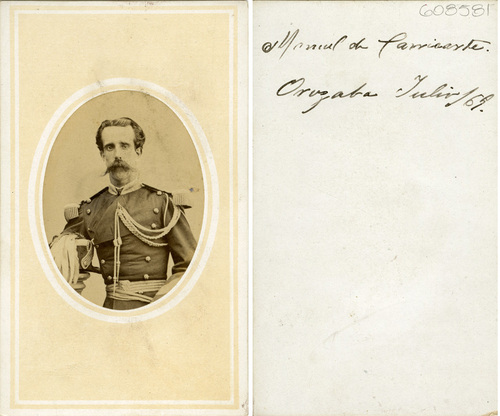 608581
Manuel de Carricarte.
Orizaba Julio/69.